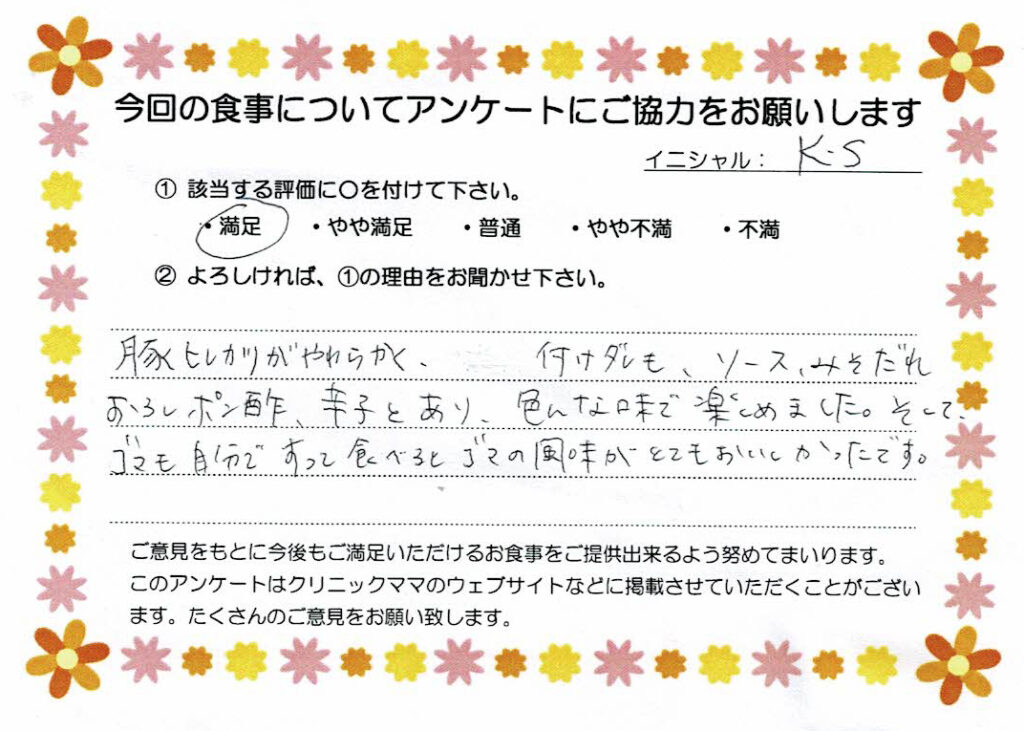 今回の食事についてアンケートにご協力をお願いします
イニシャル： K.S
① 該当する評価に〇を付けて下さい。
・満足 ・やや満足 ・普通 ・やや不満 ・不満
② よろしければ、①の理由をお聞かせ下さい。
豚ヒレカツがやわらかく、 付けダレも、ソース、みそだれ
おろしポン酢、辛子とあり、色んな味で楽しめました。そして、
ゴマも自分ですって食べるとゴマの風味がとてもおいしかったです。
ご意見をもとに今後もご満足いただけるお食事をご提供出来るよう努めてまいります。
このアンケートはクリニックママのウェブサイトなどに掲載させていただくことがござい
ます。たくさんのご意見をお願い致します。